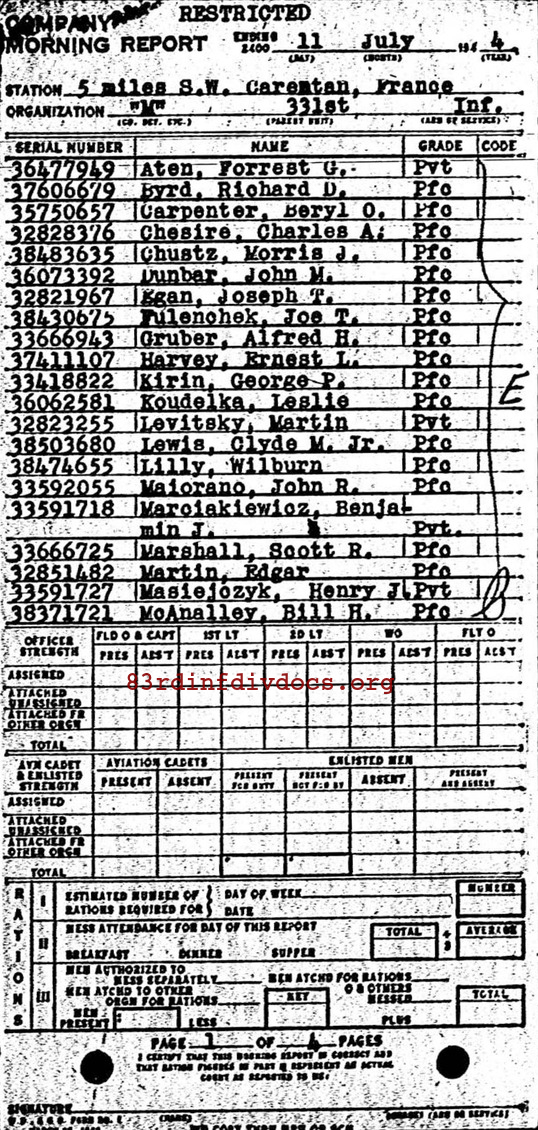 COMPANY
RESTRICTED
MORNING REPORT ENDING 2400 11 July 194 4
(DAY) (MONTH) (YEAR)
STATION 5 miles S.W. Carentan, France
ORGANIZATION "M" 331st Inf.
(CO. DET. ETC.) (PARENT UNIT) (ARM OF SERVICE)
SERIAL NUMBER NAME GRADE CODE
36477949 Aten, Forrest G. Pvt
37606679 Byrd, Richard D. Pfc
35750657 Carpenter, Beryl O. Pfc
32828376 Chesire, Charles A. Pfc
38483635 Chustz, Morris J. Pfc
36073392 Dunbar, John M. Pfc
32821967 Egan, Joseph T. Pfc
38430675 Fulenchek, Joe T. Pfc
33666943 Gruber, Alfred H. Pfc
37411107 Harvey, Ernest L. Pfc
33418822 Kirin, George P. Pfc E
36062581 Koudelka, Leslie Pfc
32823255 Levitsky, Martin Pvt
38503680 Lewis, Clyde M. Jr. Pfc
38474655 Lilly, Wilburn Pfc
33592055 Maiorano, John R. Pfc
33591718 Marciakiewicz, Benja-
min J. Pvt.
33666725 Marshall, Scott R. Pfc
32851482 Martin, Edgar Pfc
33591727 Masiejczyk, Henry J. Pvt
38371721 McAnalley, Bill H. Pfc
OFFICER STRENGTH FLD O & CAPT 1ST LT 2D LT WO FLT O
PRES ABS'T PRES ABS'T PRES ABS'T PRES ABS'T PRES ABS'T
ASSIGNED
83rdinfdivdocs.org
ATTACHED UNASSIGNED
ATTACHED FR OTHER ORGN
TOTAL
AVN CADET & ENLISTED STRENGTH AVIATION CADETS ENLISTED MEN
PRESENT ABSENT PRESENT FOR DUTY PRESENT NOT FOR DY ABSENT PRESENT AND ABSENT
ASSIGNED
ATTACHED UNASSIGNED
ATTACHED FR OTHER ORGN
TOTAL
RATIONS
I ESTIMATED NUMBER OF RATIONS REQUIRED FOR DAY OF WEEK DATE NUMBER
II MESS ATTENDANCE FOR DAY OF THIS REPORT TOTAL ÷ 3 AVERAGE
BREAKFAST DINNER SUPPER
III MEN AUTHORIZED TO MESS SEPARATELY MEN ATCHD FOR RATIONS
MEN ATCHD TO OTHER ORGN FOR RATIONS NET O & OTHERS MESSED TOTAL
MEN PRESENT LESS PLUS
PAGE 1 OF 4 PAGES
I CERTIFY THAT THIS MORNING REPORT IS CORRECT AND
THAT RATION FIGURES IN PART II REPRESENT AN ACTUAL
COUNT AS REPORTED TO ME.
SIGNATURE
(NAME) (ARM OR SERVICE)